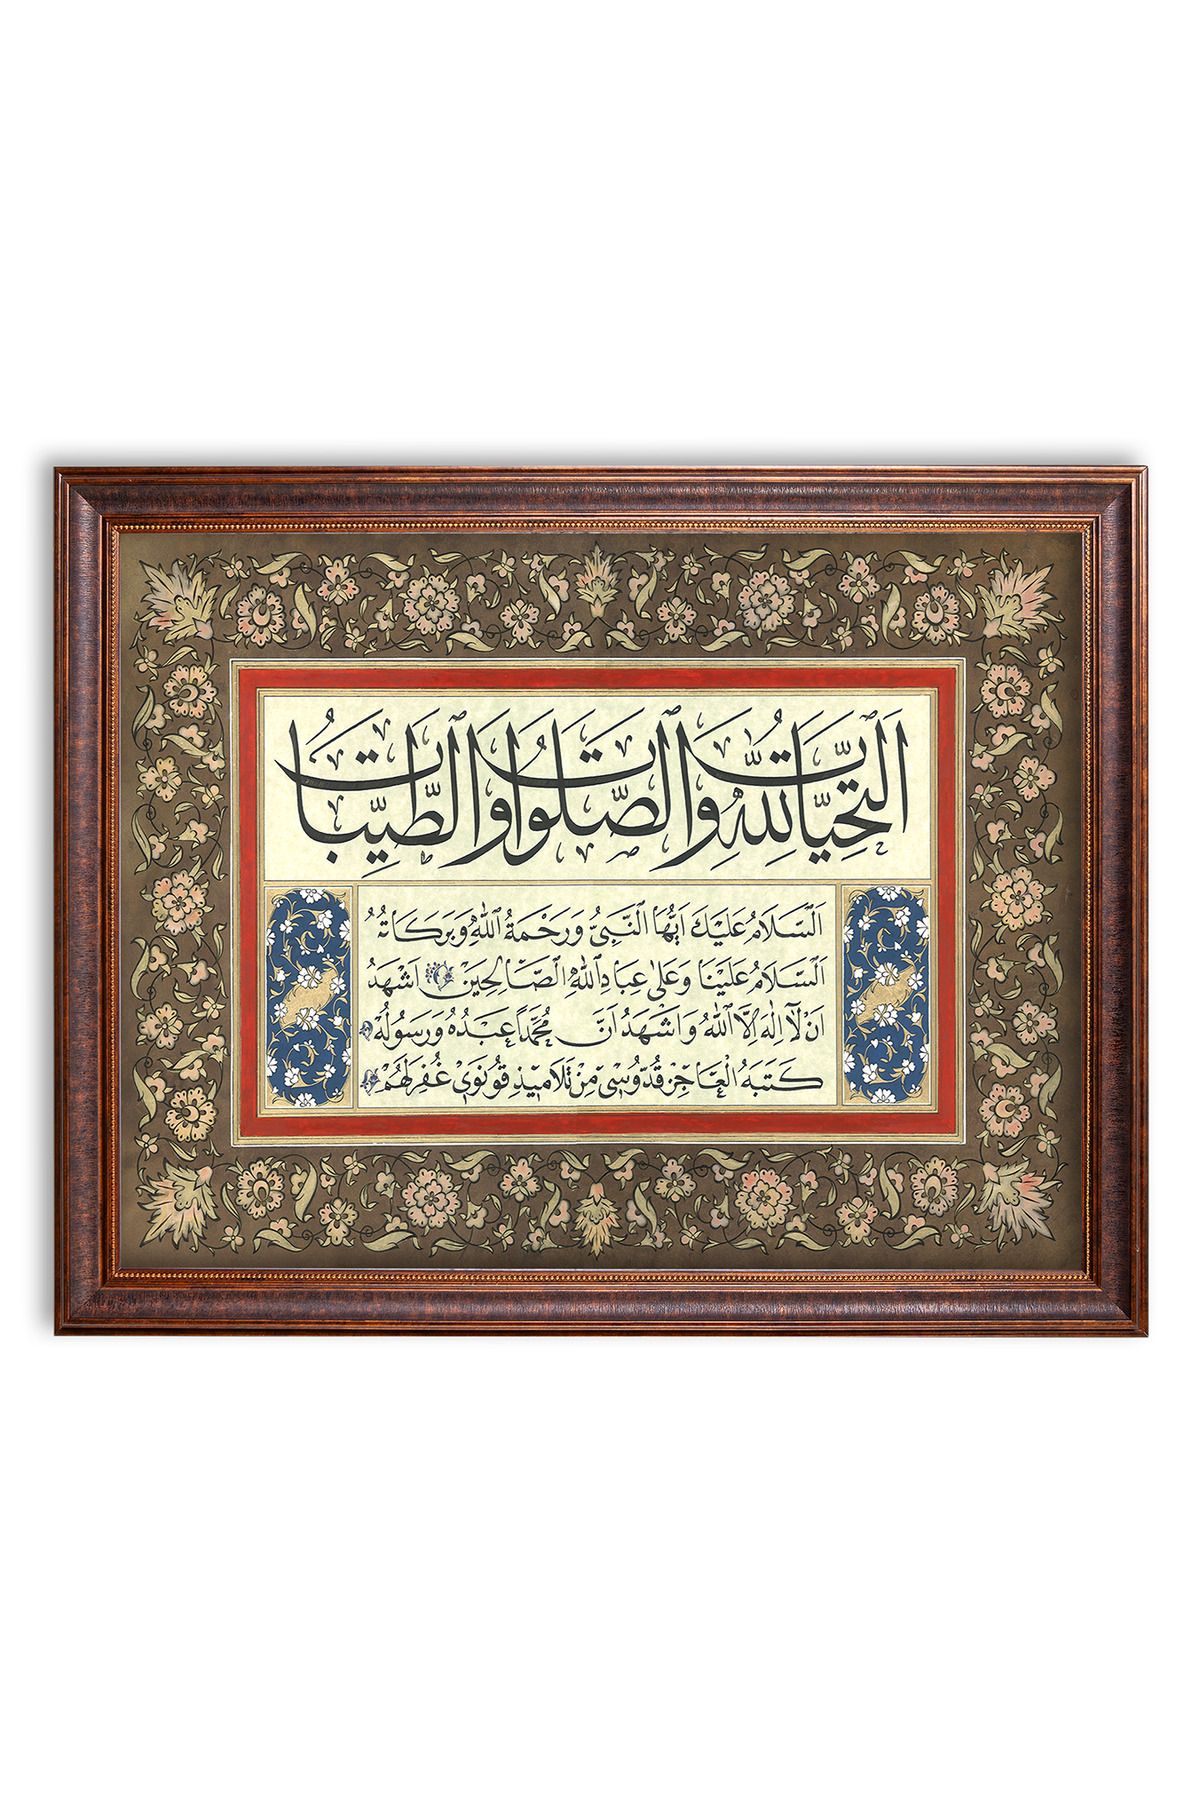 اَلتَّحِيَّاتُ لِلّٰهِ وَالصَّلَوَاتُ وَالطَّيِّبَاتُ
اَلسَّلَامُ عَلَيْكَ اَيُّهَا النَّبِىُّ وَرَحْمَةُ اللّٰهِ وَبَرَكَاتُهُ
اَلسَّلَامُ عَلَيْنَا وَعَلٰى عِبَادِ اللّٰهِ الصَّالِحِينَ اَشْهَدُ
اَنْ لَآ اِلٰهَ اِلَّا اللّٰهُ وَاَشْهَدُ اَنَّ مُحَمَّدًا عَبْدُهُ وَرَسُولُهُ
كَتَبَهُ الْعَاجِزْ قُدُّوسِى مِنْ تَلَامِيذِ قُونَوِىْ غُفِرَ لَهُمْ